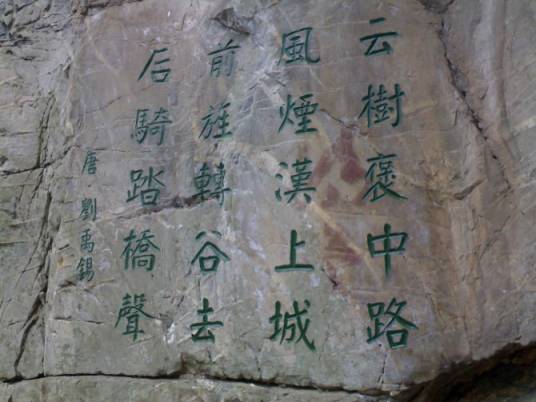 云樹褒中路
風煙漢上城
前旌轉谷去
后騎踏橋聲
唐·劉禹錫